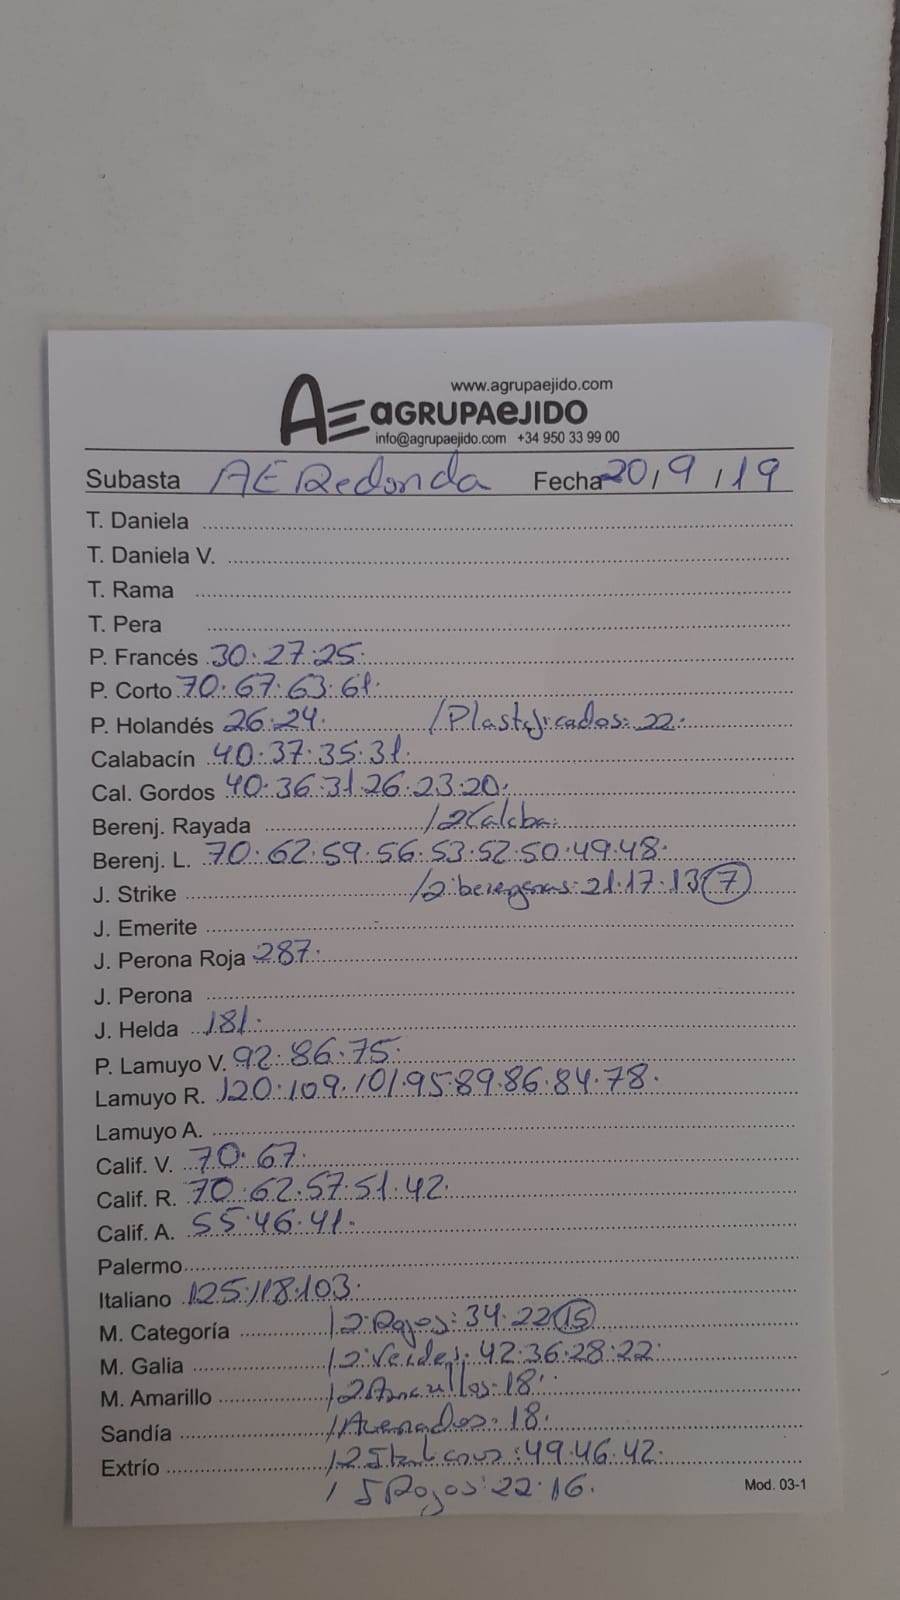 www.agrupaejido.com
AE aGRUPAeJIDO
info@agrupaejido.com +34 950 33 99 00
Subasta AE Redonda Fecha 20/9/19
T. Daniela
T. Daniela V.
T. Rama
T. Pera
P. Francés 30·27·25·
P. Corto 70·67·63·61·
P. Holandés 26·24· /Plastificados: 22·
Calabacín 40·37·35·31·
Cal. Gordos 40·36·31·26·23·20·
Berenj. Rayada /2Calaba·
Berenj. L. 70·62·59·56·53·52·50·49·48·
J. Strike /2 berengenas: 21·17·13 7
J. Emerite
J. Perona Roja 287·
J. Perona
J. Helda 181·
P. Lamuyo V. 92·86·75·
Lamuyo R. 120·109·101·95·89·86·84·78·
Lamuyo A.
Calif. V. 70·67·
Calif. R. 70·62·57·51·42·
Calif. A. 55·46·41·
Palermo
Italiano 125·118·103·
M. Categoría /2 Rojos: 34·22 15
M. Galia /2 Verdes: 42·36·28·22·
M. Amarillo /2 Amarillos: 18·
Sandía /Asurcados: 18·
Extrío /2 : 49·46·42·
/ 5 Rojos: 22·16·
Mod. 03-1